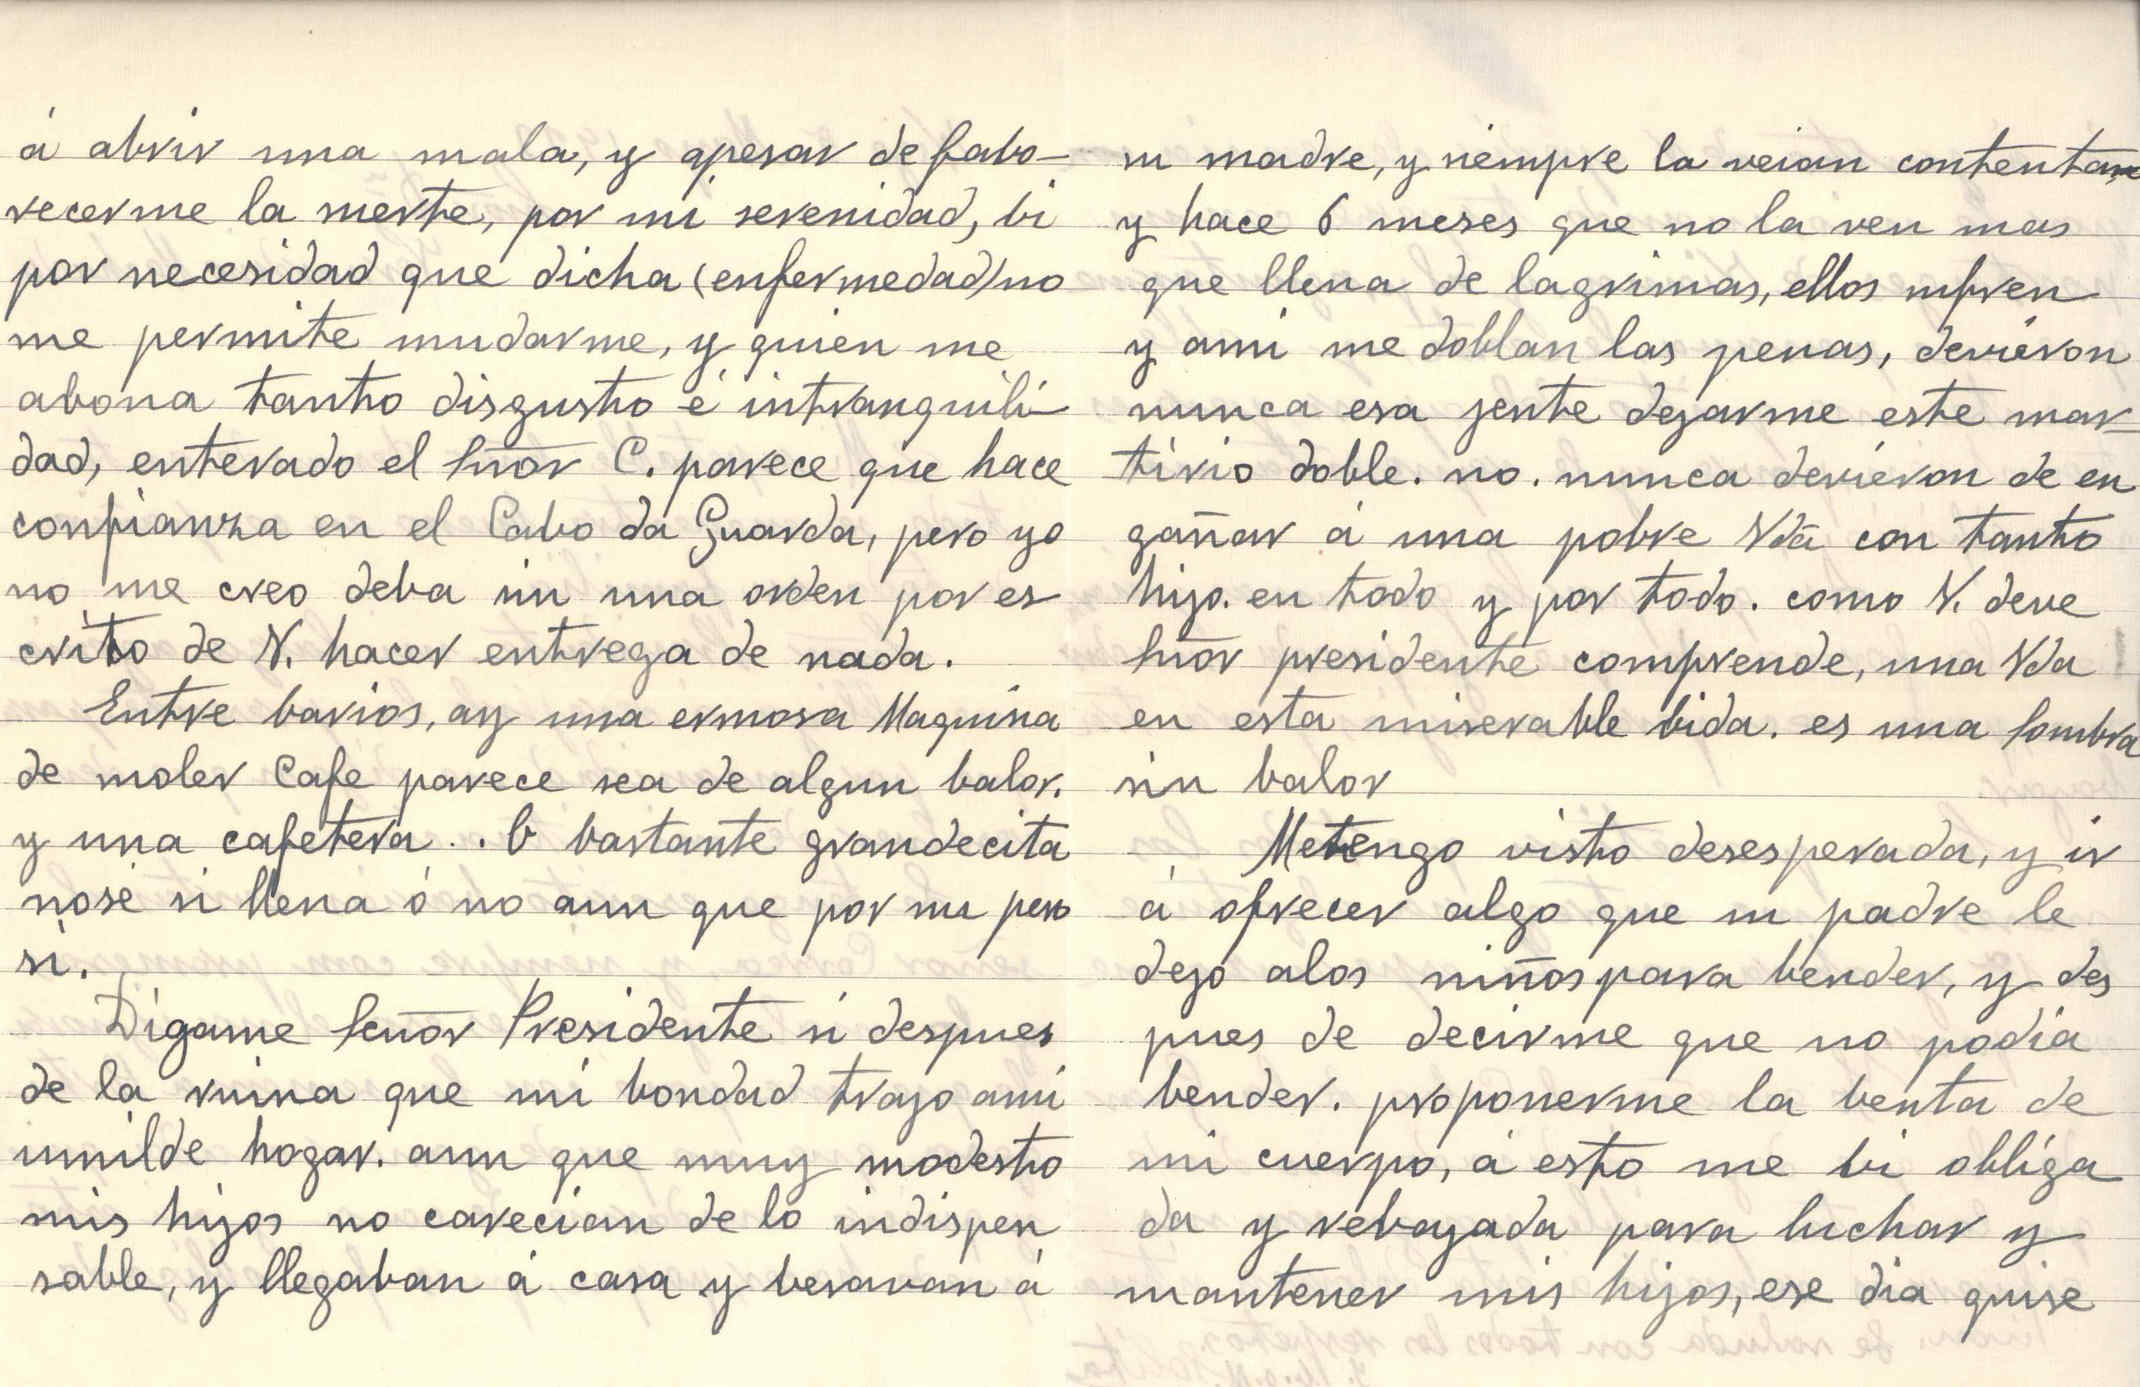 á abrir una mala, y apesar de fabo-
recerme la suerte, por mi serenidad, bi
por necesidad que dicha (enfermedad) no
me permite mudarme, y quien me
abona tanto disgusto é intranquili-
dad, enterado el Sñor C. parece que hace
confianza en el Cabo da Guarda, pero yo
no me creo deba sin una orden por es
crito de V. hacer entrega de nada.
Entre barios, ay una ermosa Maquina
de moler Cafe parece sea de algun balor.
y una cafetera .. b bastante grandecita
nosé si llena ó no aun que por su peso
si.
Digame Señor Presidente si despues
de la ruina que mi bondad trajo ami
umilde hogar. aun que muy modesto
mis hijos no carecian de lo indispen
sable, y llegaban á casa y besavan á
su madre, y siempre la veian contenta,
y hace 6 meses que no la ven mas
que llena de lagrimas, ellos sufren
y ami me doblan las penas, devieron
nunca esa jente dejarme este mar-
tirio doble. no. nunca devieron de en
gañar á una pobre Vda con tanto
hijo. en todo y por todo. como V. deve
Sñor presidente comprende, una Vda
en esta miserable bida. es una Sombra
sin balor
Metengo visto desesperada, y ir
á ofrecer algo que su padre le
dejo alos niños para bender, y des
pues de decirme que no podia
bender. proponerme la benta de
mi cuerpo, á esto me bi obliga
da y rebajada para luchar y
mantener mis hijos, ese dia quise